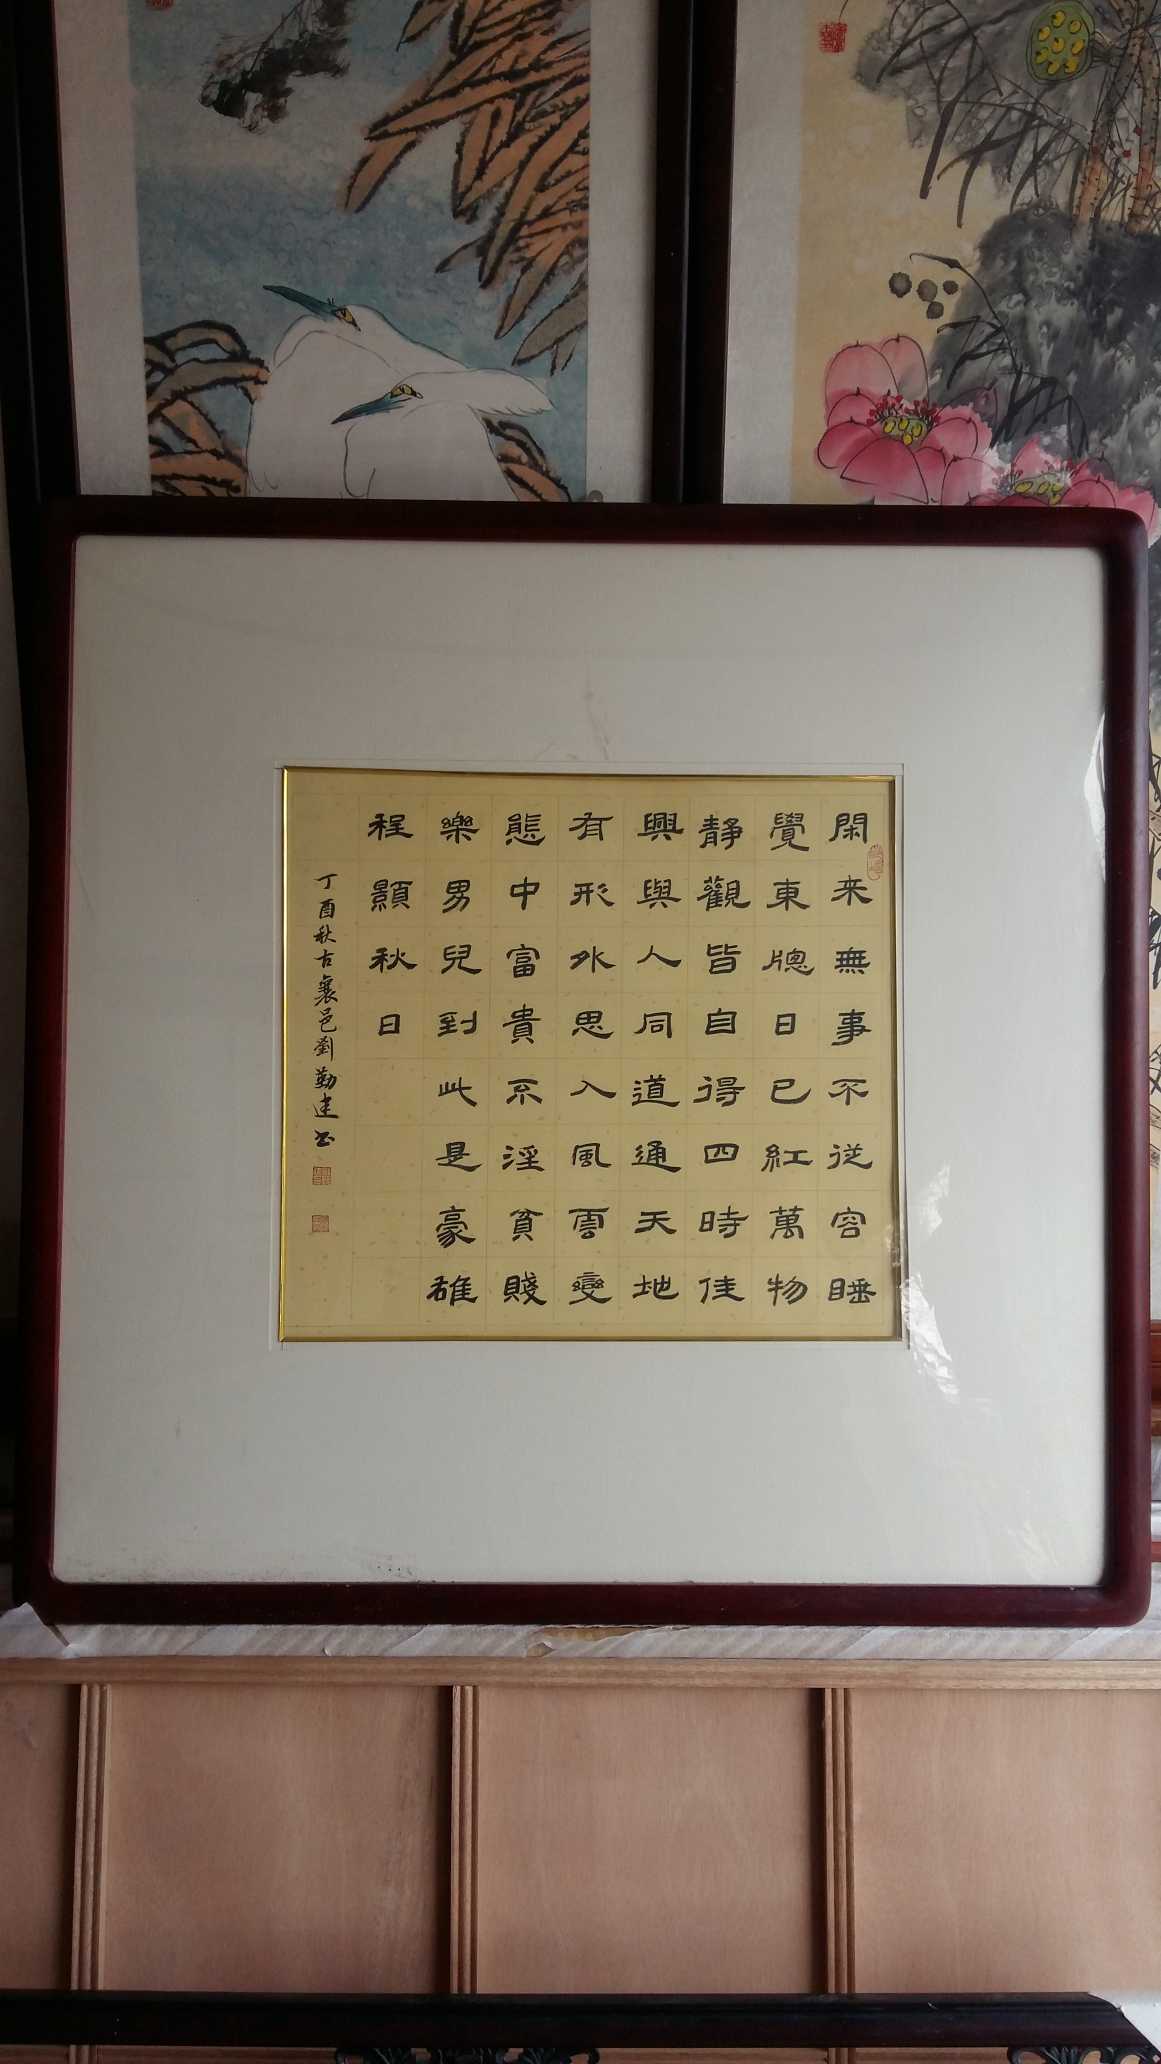 閑来無事不從容睡
覺東牕日已紅萬物
静觀皆自得四時佳
興與人同道通天地
有形外思入風雲變
態中富貴不淫貧賤
樂男兒到此是豪雄
程顥秋日
丁酉秋古襄邑劉勤建书